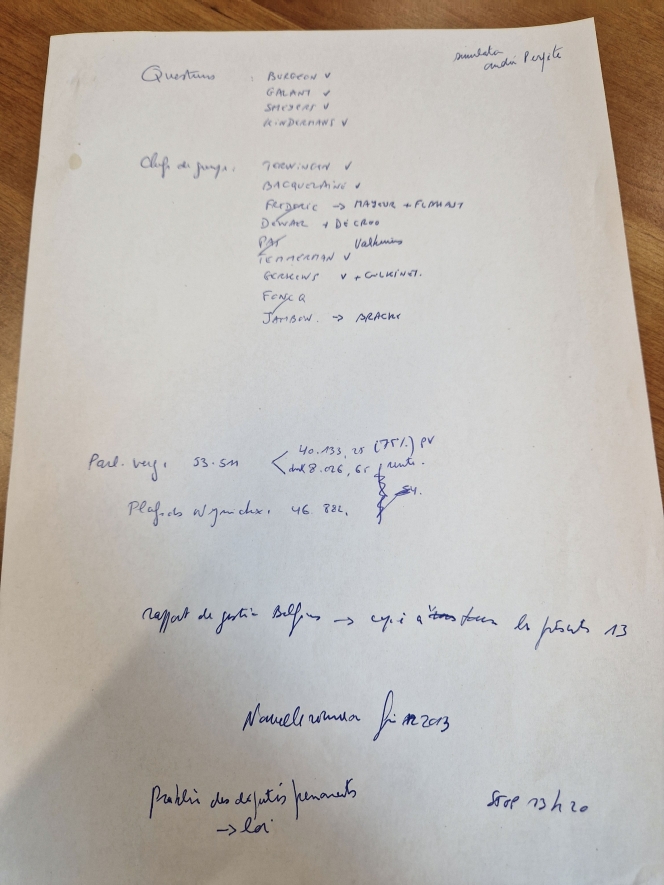 Questeurs : BURGEON v
GALANT v
SMEYERS v
KINDERMANS v
Chefs de groupe :
TERWINGEN v
BACQUELAINE v
FREDERIC → MAYEUR + FLAHAUT
DEWAEL + DECROO
PAS
TEMMERMAN v
GERKENS v + GILKINET.
FONCK
JAMBON. → BRACKE
Parl. verg. 53.511
40.133,25 (75%) PV
8.026,65 rente.
46.882.
rapport de gestion Belfius → copie à les présents 13
Nouvelle fin 2013
Problème des députés permanents
→ loi
STOP 13h20